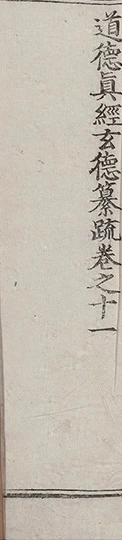 道德眞經玄德纂疏卷之十一